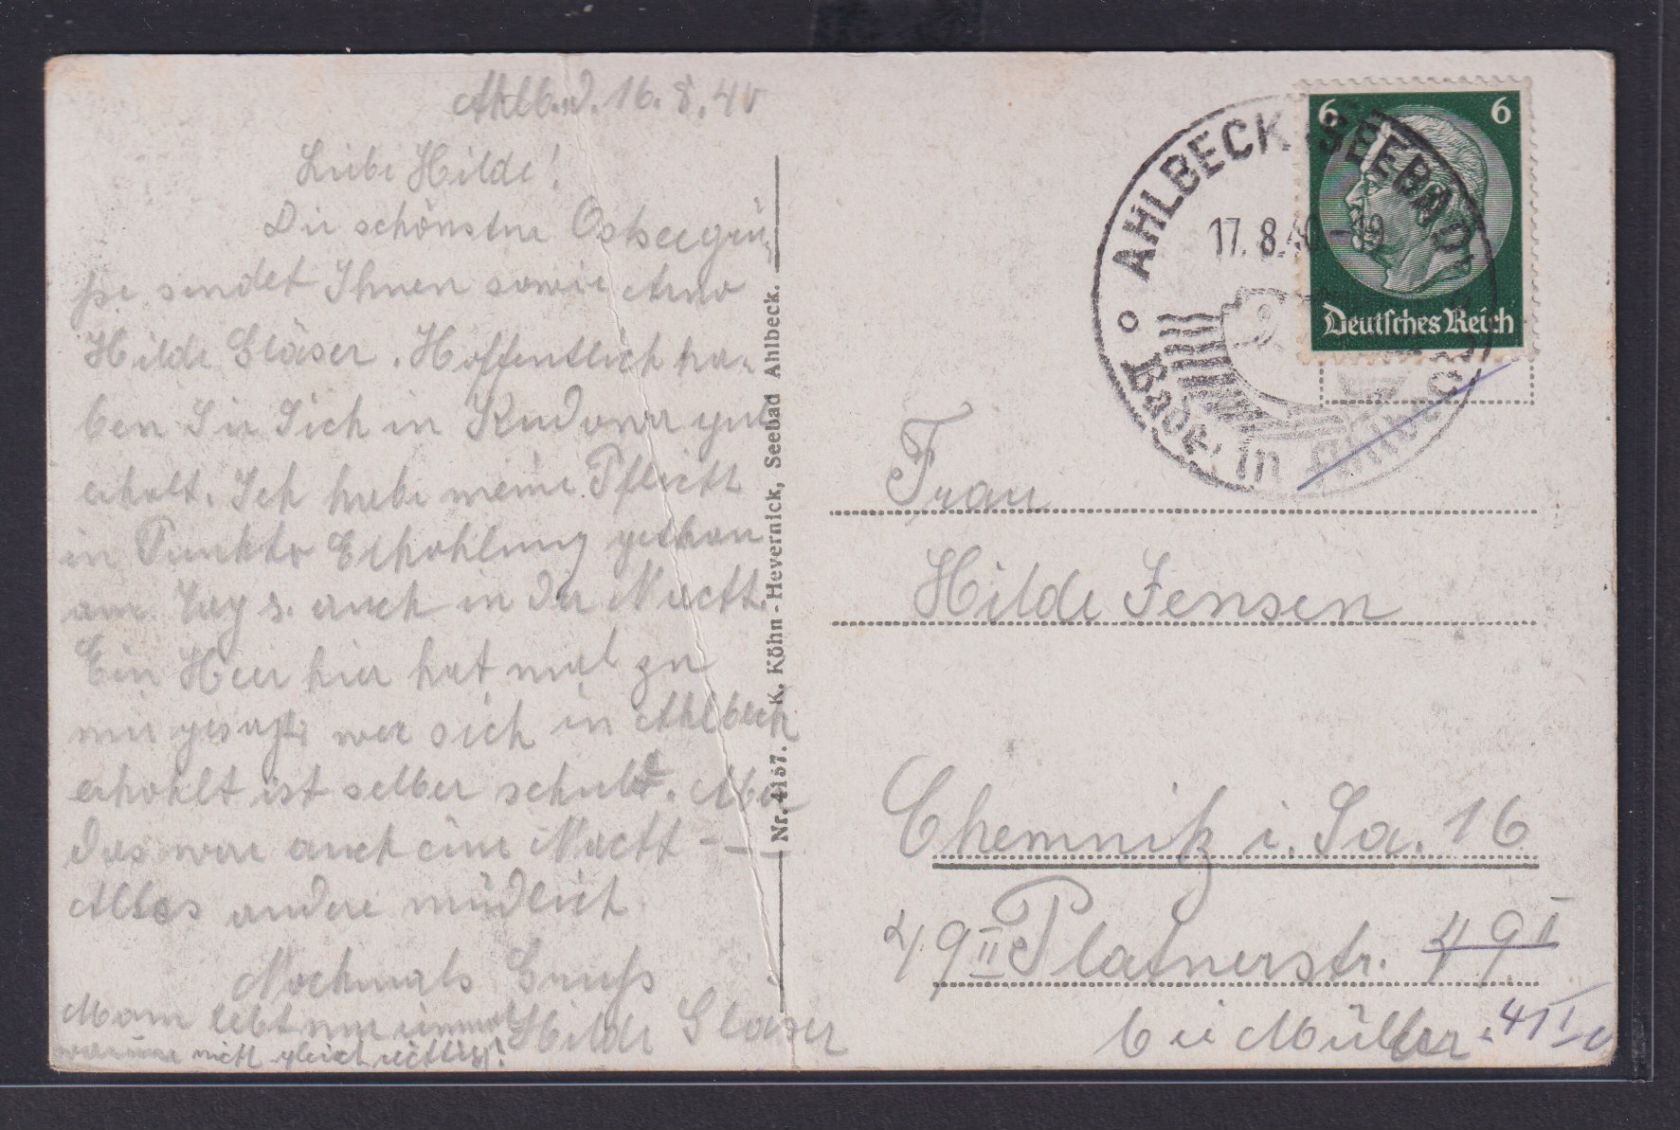 Ahlb. d. 16. 8. 40
Liebe Hilde!
Die schönsten Ostseegrü
ße sendet Ihnen sowie Arno
Hilde Gläser. Hoffentlich ha-
ben Sie Sich in Kudowa gut
erholt. Ich habe meine Pflicht
in Punkto Erhohlung gethan
am Tag s. auch in der Nacht.
Ein Herr hier hat mal zu
mir gesagt, wer sich in Ahlbeck
erhohlt ist selber schuld. Aber
das war auch eine Nacht - - -
Alles andere mündlich
Nochmals Gruß
Hilde Gläser
Mann lebt nur einmal
warum nicht gleich richtig?
Nr. 4157. K. Köhn-Hevernick, Seebad Ahlbeck.
AHLBECK SEEBAD
17. 8. 40.-19
Badet in Ahlbeck
6 6
Deutsches Reich
Frau
Hilde Jensen
Chemnitz i. Sa. 16
49 II Platnerstr. 49 I
bei Müller. 41 I